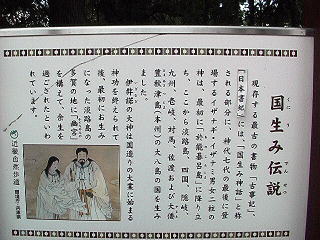 国生み伝説
くにう でんせつ
現存する最古の書物「古事記」、
「日本書紀」には、「国生み神話」と称
される部分に、神代七代の最後に登
場するイザナギ・イザナミ男女二柱の
神は、最初に「於能碁呂島」に降り立
ち、ここから淡路島、四国、隠岐、
九州、壱岐、対馬、佐渡および大倭
豊秋津島(本州)の大八島の国を生み
ました。
伊弉諾の大神は国造りの大業に始まる
神功を終えられて
後、最初にお生み
になった淡路島の
多賀の地に「幽宮」
を構えて、余生を
過ごされたといわ
れています。
近畿自然歩道